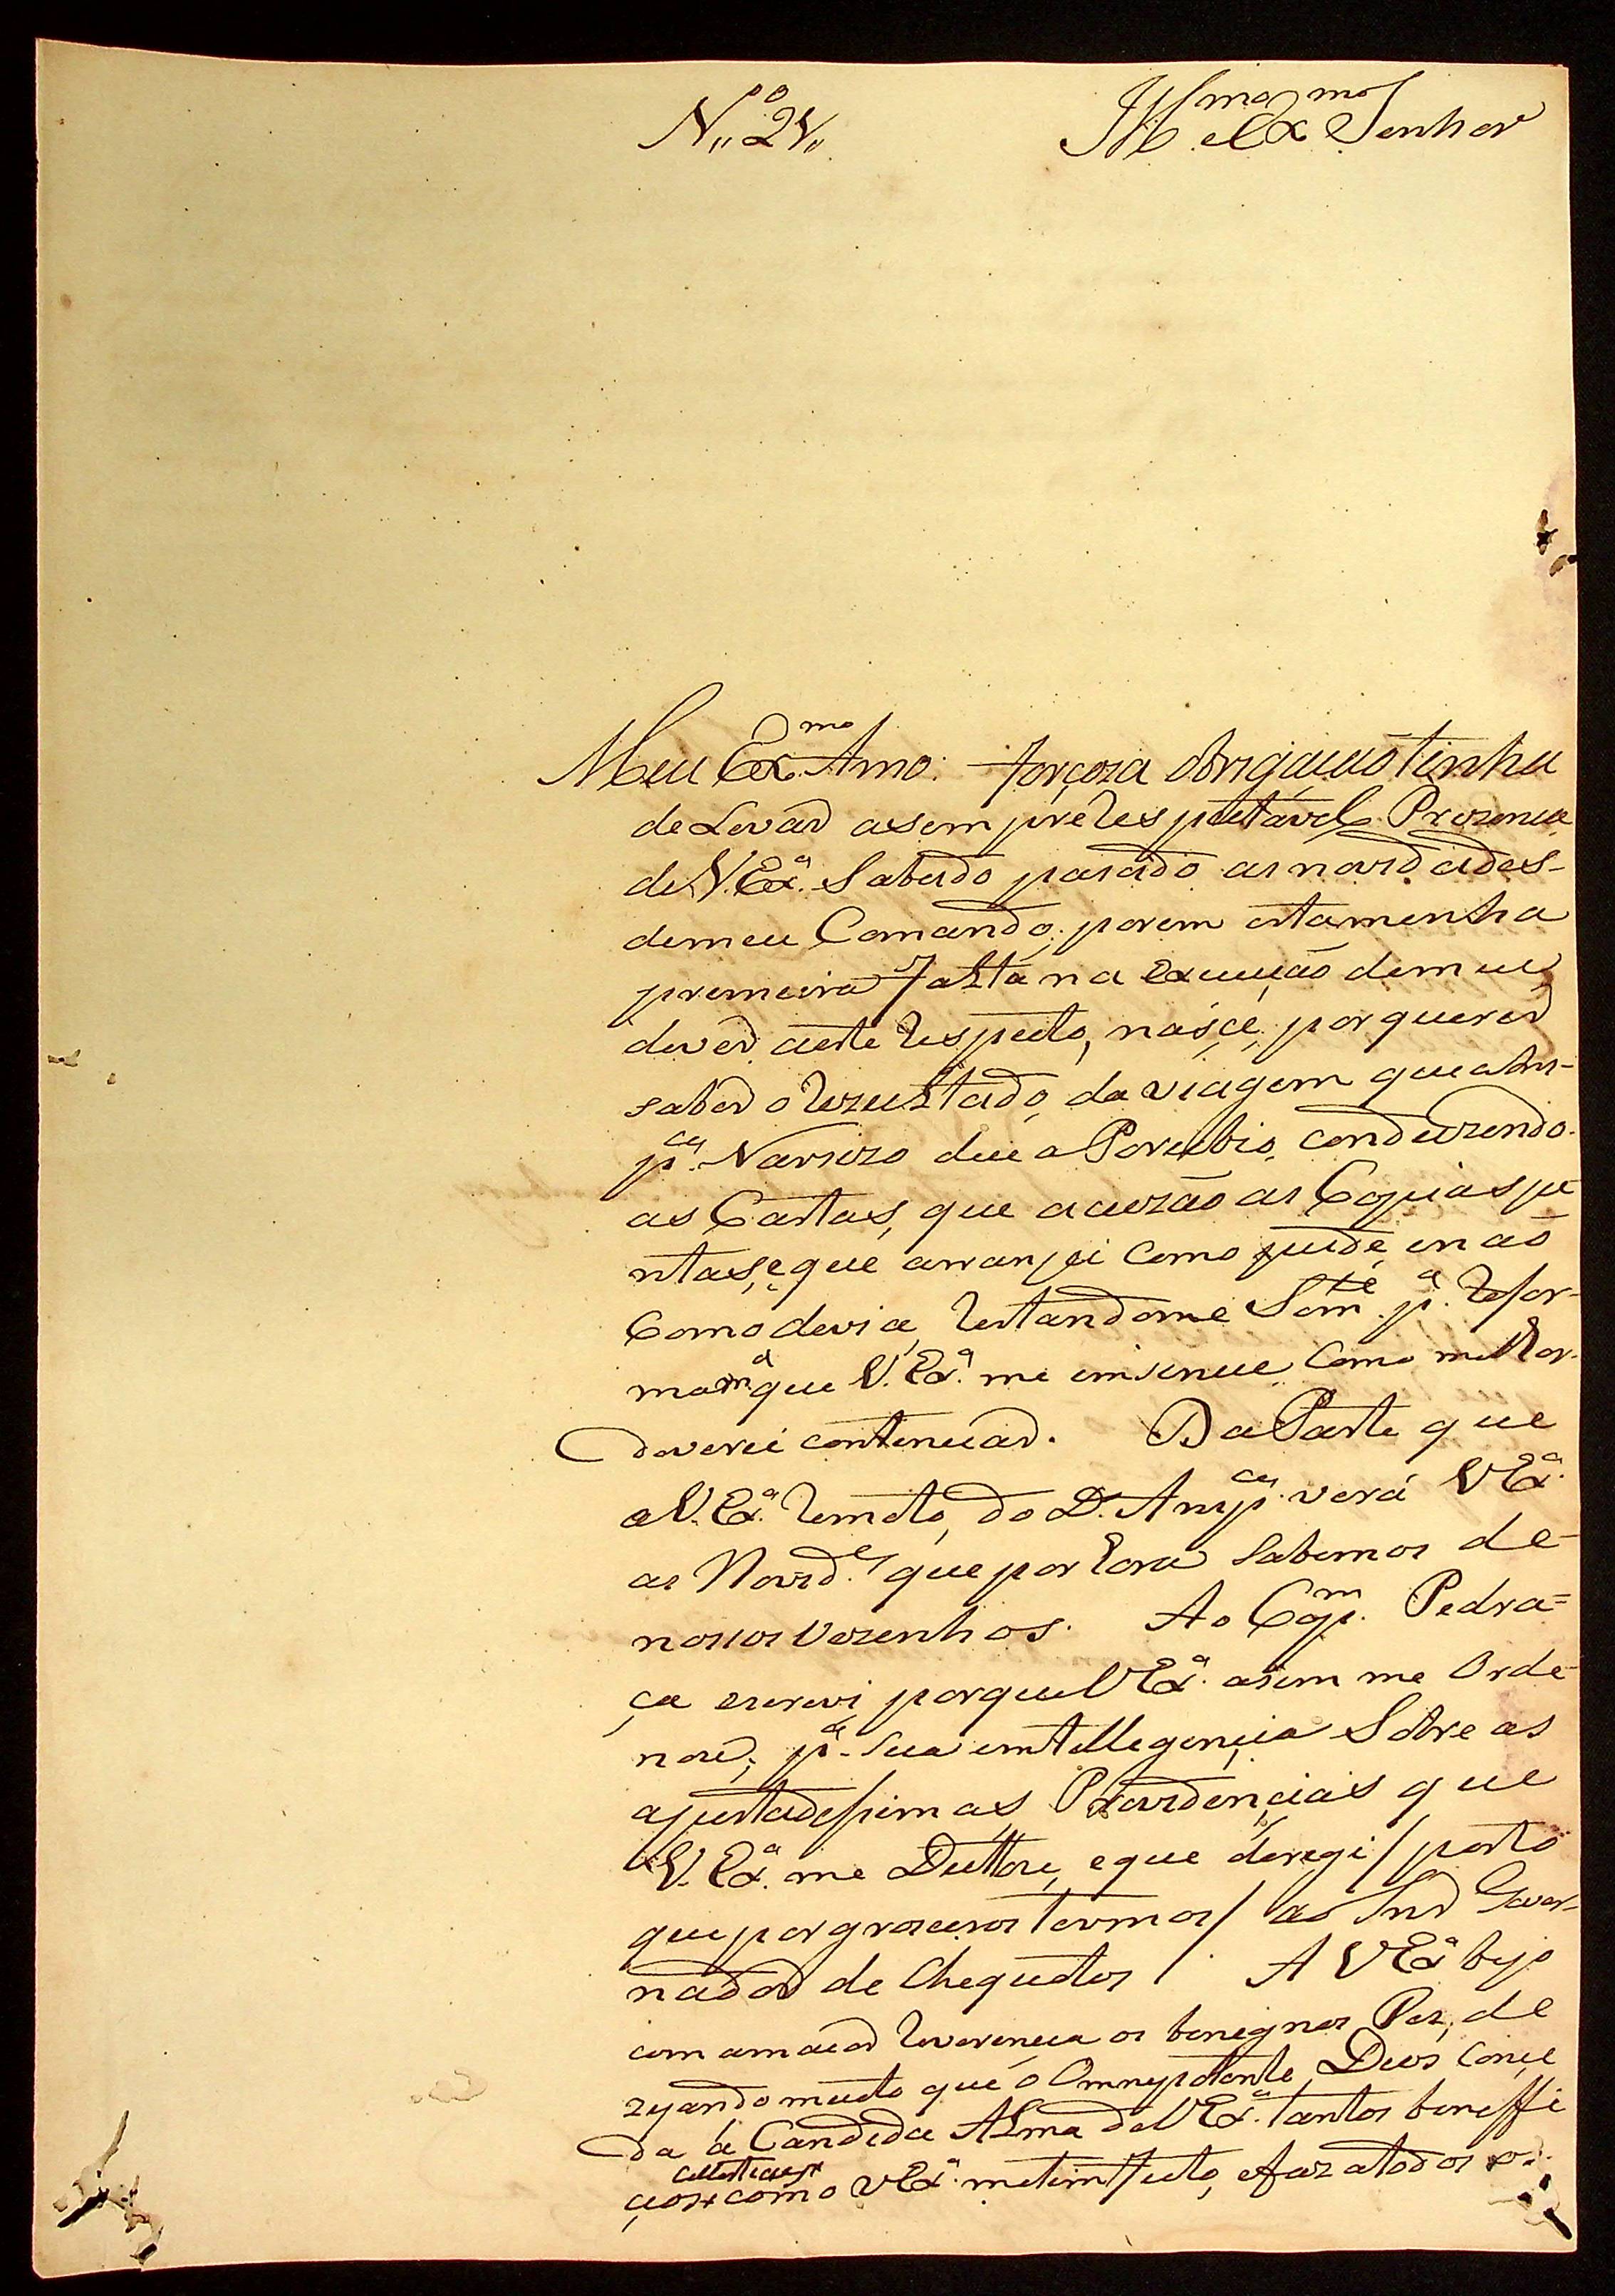 N.º 24,, Ill.mo e Ex.mo Senhor
Meu Ex.mo Amo: forçoza obrigação tinha
de Levar a sempre Respeitavel Prezença
de V. Ex.ª Sabado pasado as novidades
de meu Comando; porem esta menha
premeira falta na Execução de meu
dever a este Respeito, nasçe, por querer
saber o Rezultado, da viagem que a
Narcizo conduzindo
as Cartas, que acuzão as Copias ju
ntas, e que arranjei como pude, e não
Como devia, Restandome Som.te p.ª Refor
ma q V. Ex.ª me ensenue Como milhor
deverei contenuar. Da Parte que
a V. Ex.ª Remeto, do D. Ansp.ca verá V Ex.ª
as Novid.es que por Ora Sabemos de
nosos Vezenhos. Ao Cap.m Pedra=
ça escrevi, porque V Ex.ª asim me Orde
nou, p.ª Sua emtellegençia Sobre as
ajustadessimas Provedençias que
V. Ex.ª me Dittou, e que deregi / posto
que por groceiros termos / ao Snr Gover
nador de Chequitos / A V Ex.ª bejo
com amaior Reverençia os benignos Pes, de
zejando muito que o Omnipotente Deos Conçe
da á Candida Alma de V Ex.ª tantos beneffi
çios como V Ex.ª me tem feito, e faz a todos os